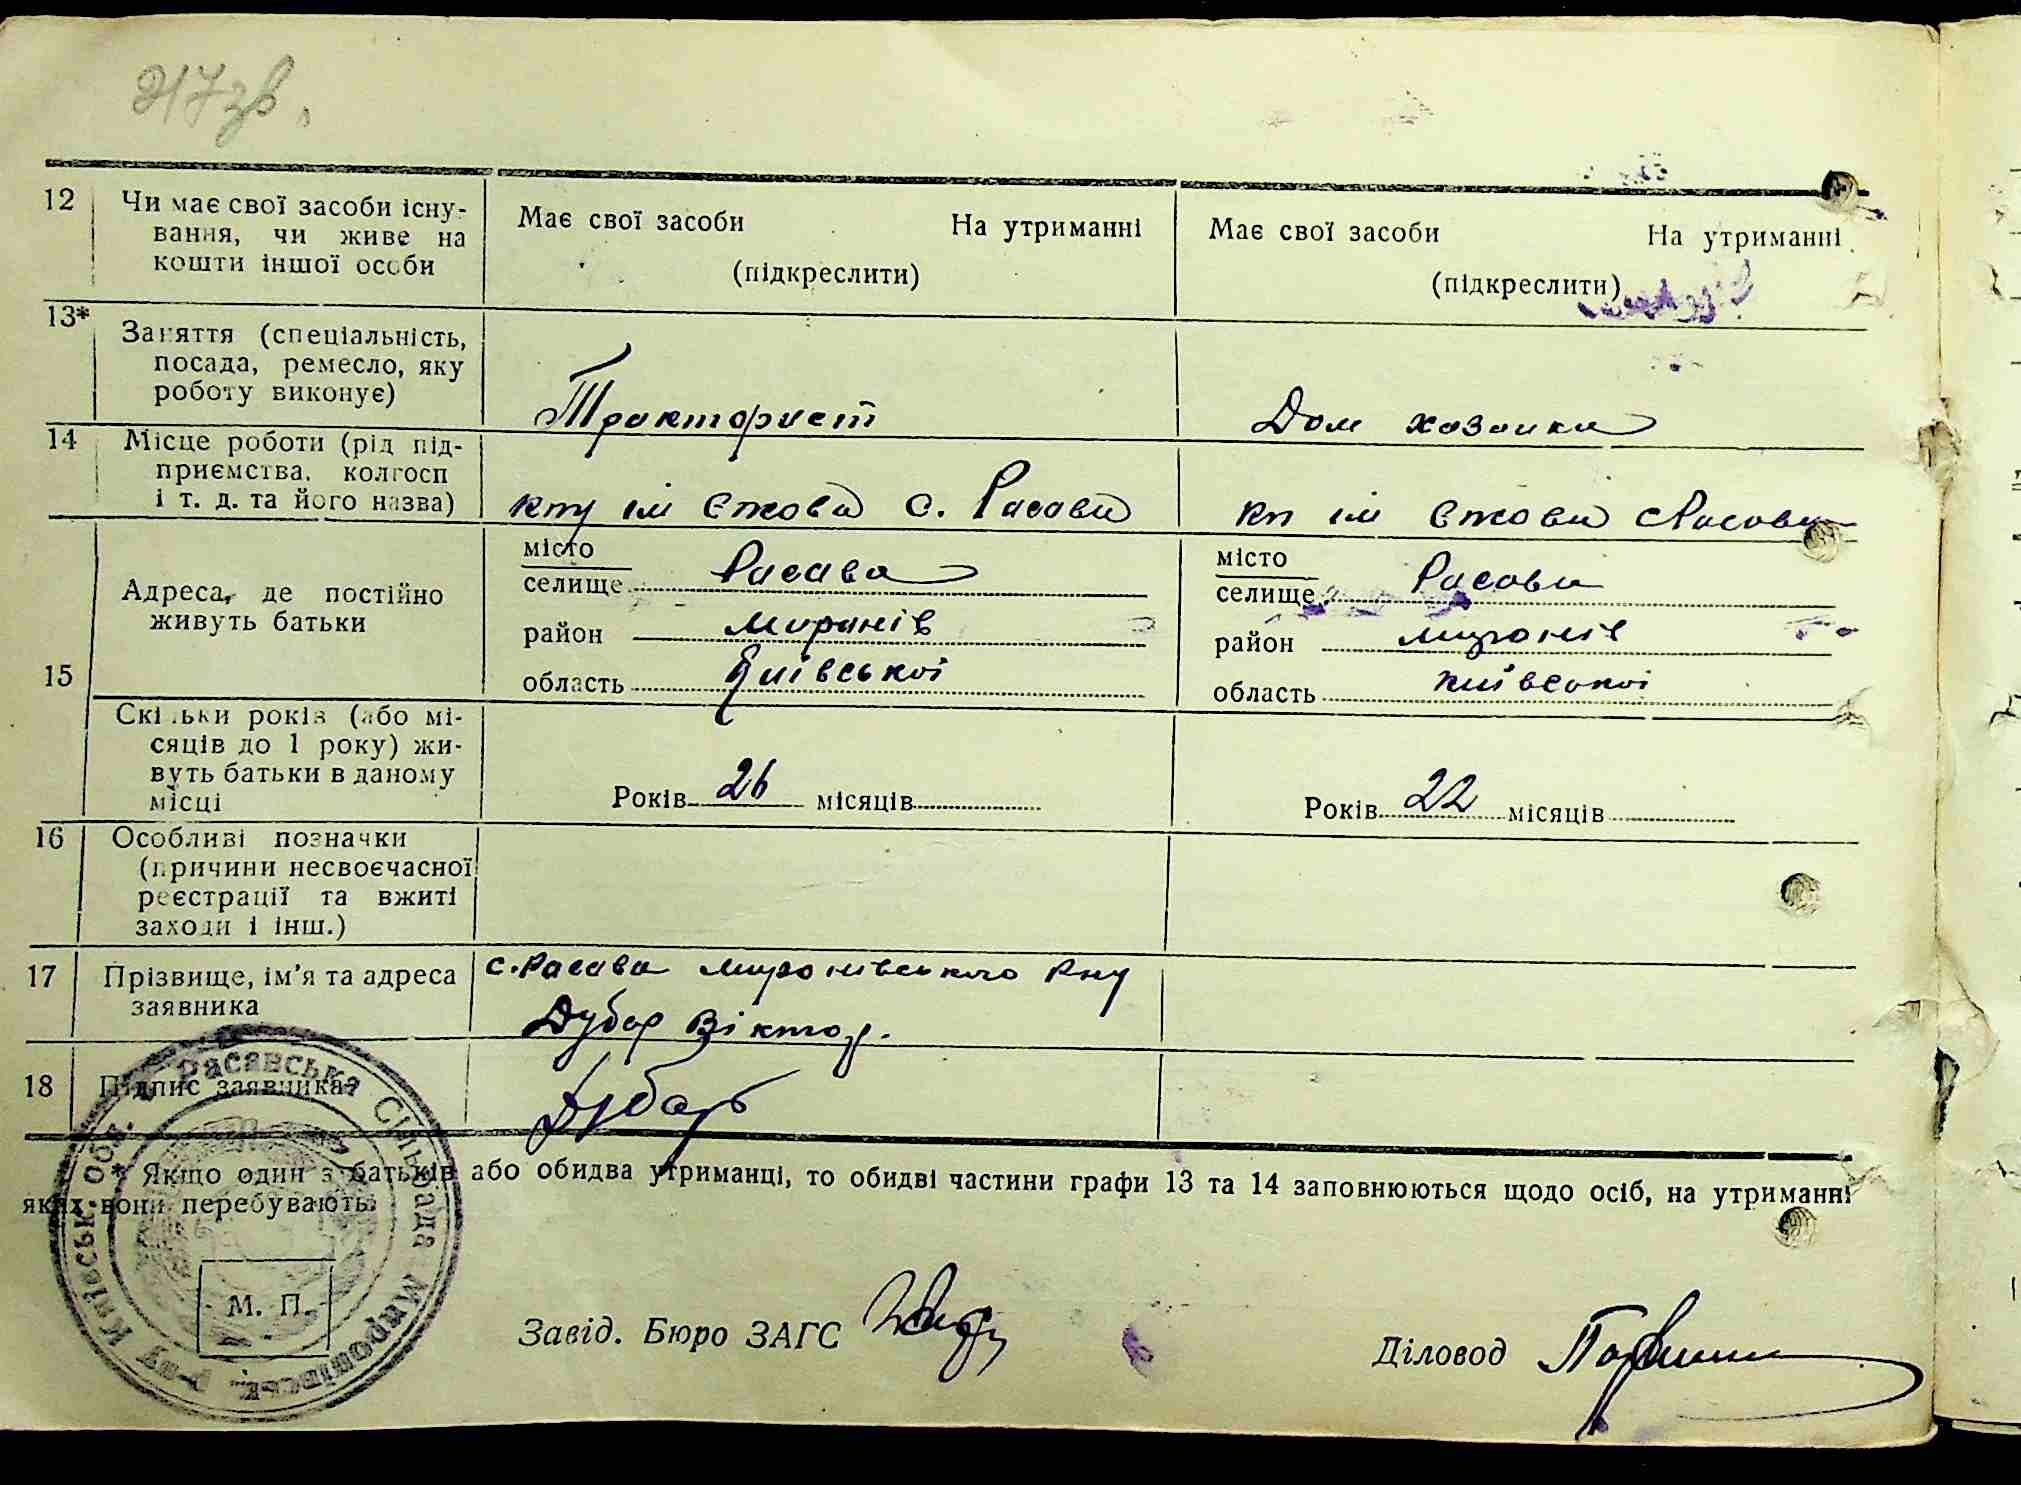 217зв.
12 Чи має свої засоби існу-
вання, чи живе на
кошти іншої особи
Має свої засоби На утриманні
(підкреслити)
Має свої засоби На утриманні
(підкреслити)
13* Заняття (спеціальність,
посада, ремесло, яку
роботу виконує)
Тракторист
Дом хозаика
14 Місце роботи (рід під-
приємства, колгосп
і т. д. та його назва)
кпу ім Єжова с. Расава
кп ім Єжова с Расава
15 Адреса, де постійно
живуть батьки
місто
селище Расава
район Миронів
область Київської
місто
селище Расава
район Миронів
область Київської
Скільки років (або мі-
сяців до 1 року) жи-
вуть батьки в даному
місці
Років 26 місяців
Років 22 місяців
16 Особливі позначки
(причини несвоєчасної
реєстрації та вжиті
заходи і інш.)
17 Прізвище, ім'я та адреса
заявника
с. Расава Миронівського Рну
Дубар Віктор.
18 Підпис заявника
Дубар
* Якщо один з батьків або обидва утриманці, то обидві частини графи 13 та 14 заповнюються щодо осіб, на утриманні
яких вони перебувають.
Расавська Сільрада Миронівськ. р-ну Київськ. обл.
М. П.
Завід. Бюро ЗАГС
Діловод